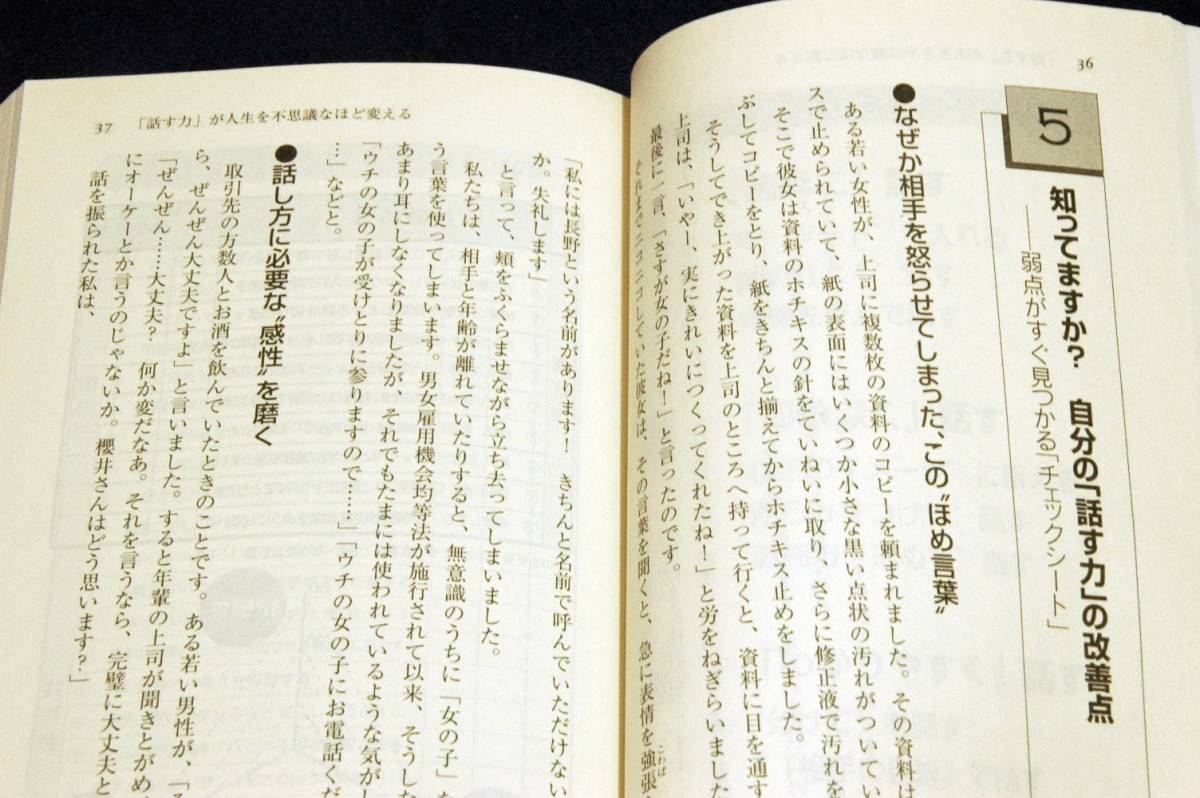 36
5
知ってますか？　自分の「話す力」の改善点
――弱点がすぐ見つかる「チェックシート」
●なぜか相手を怒らせてしまった、この〝ほめ言葉〟
ある若い女性が、上司に複数枚の資料のコピーを頼まれました。その資料は
スで止められていて、紙の表面にはいくつか小さな黒い点状の汚れがついてい
そこで彼女は資料のホチキスの針をていねいに取り、さらに修正液で汚れを
ぶしてコピーをとり、紙をきちんと揃えてからホチキス止めをしました。
そうしてでき上がった資料を上司のところへ持って行くと、資料に目を通す
上司は、「いやー、実にきれいにつくってくれたね！」と労をねぎらいました
最後に一言、「さすが女の子だね！」と言ったのです。
それまでニコニコしていた彼女は、その言葉を聞くと、急に表情を強張
こわば
37
「話す力」が人生を不思議なほど変える
「私には長野という名前があります！　きちんと名前で呼んでいただけない
か。失礼します」
と言って、頬をふくらませながら立ち去ってしまいました。
私たちは、相手と年齢が離れていたりすると、無意識のうちに「女の子」な
う言葉を使ってしまいます。男女雇用機会均等法が施行されて以来、そうした
あまり耳にしなくなりましたが、それでもたまには使われているような気がし
「ウチの女の子が受けとりに参りますので……」「ウチの女の子にお電話くだ
…」などと。
●話し方に必要な〝感性〟を磨く
取引先の方数人とお酒を飲んでいたときのことです。ある若い男性が、「
ら、ぜんぜん大丈夫ですよ」と言いました。すると年輩の上司が聞きとがめ、
「ぜんぜん……大丈夫？　何か変だなあ。それを言うなら、完璧に大丈夫と
にオーケーとか言うのじゃないか。櫻井さんはどう思います？」
話を振られた私は、